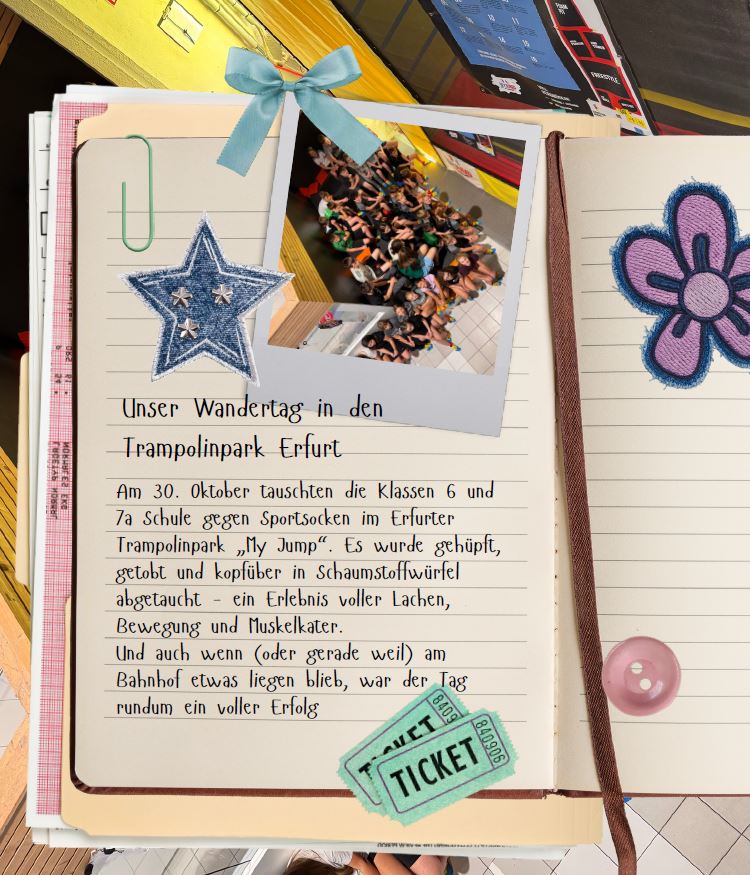 FOAM
PIT
FREESTYLE
Unser Wandertag in den
Trampolinpark Erfurt
Am 30. Oktober tauschten die Klassen 6 und
7a Schule gegen Sportsocken im Erfurter
Trampolinpark „My Jump“. Es wurde gehüpft,
getobt und kopfüber in Schaumstoffwürfel
abgetaucht - ein Erlebnis voller Lachen,
Bewegung und Muskelkater.
Und auch wenn (oder gerade weil) am
Bahnhof etwas liegen blieb, war der Tag
rundum ein voller Erfolg
TICKET
8409
TICKET
840906